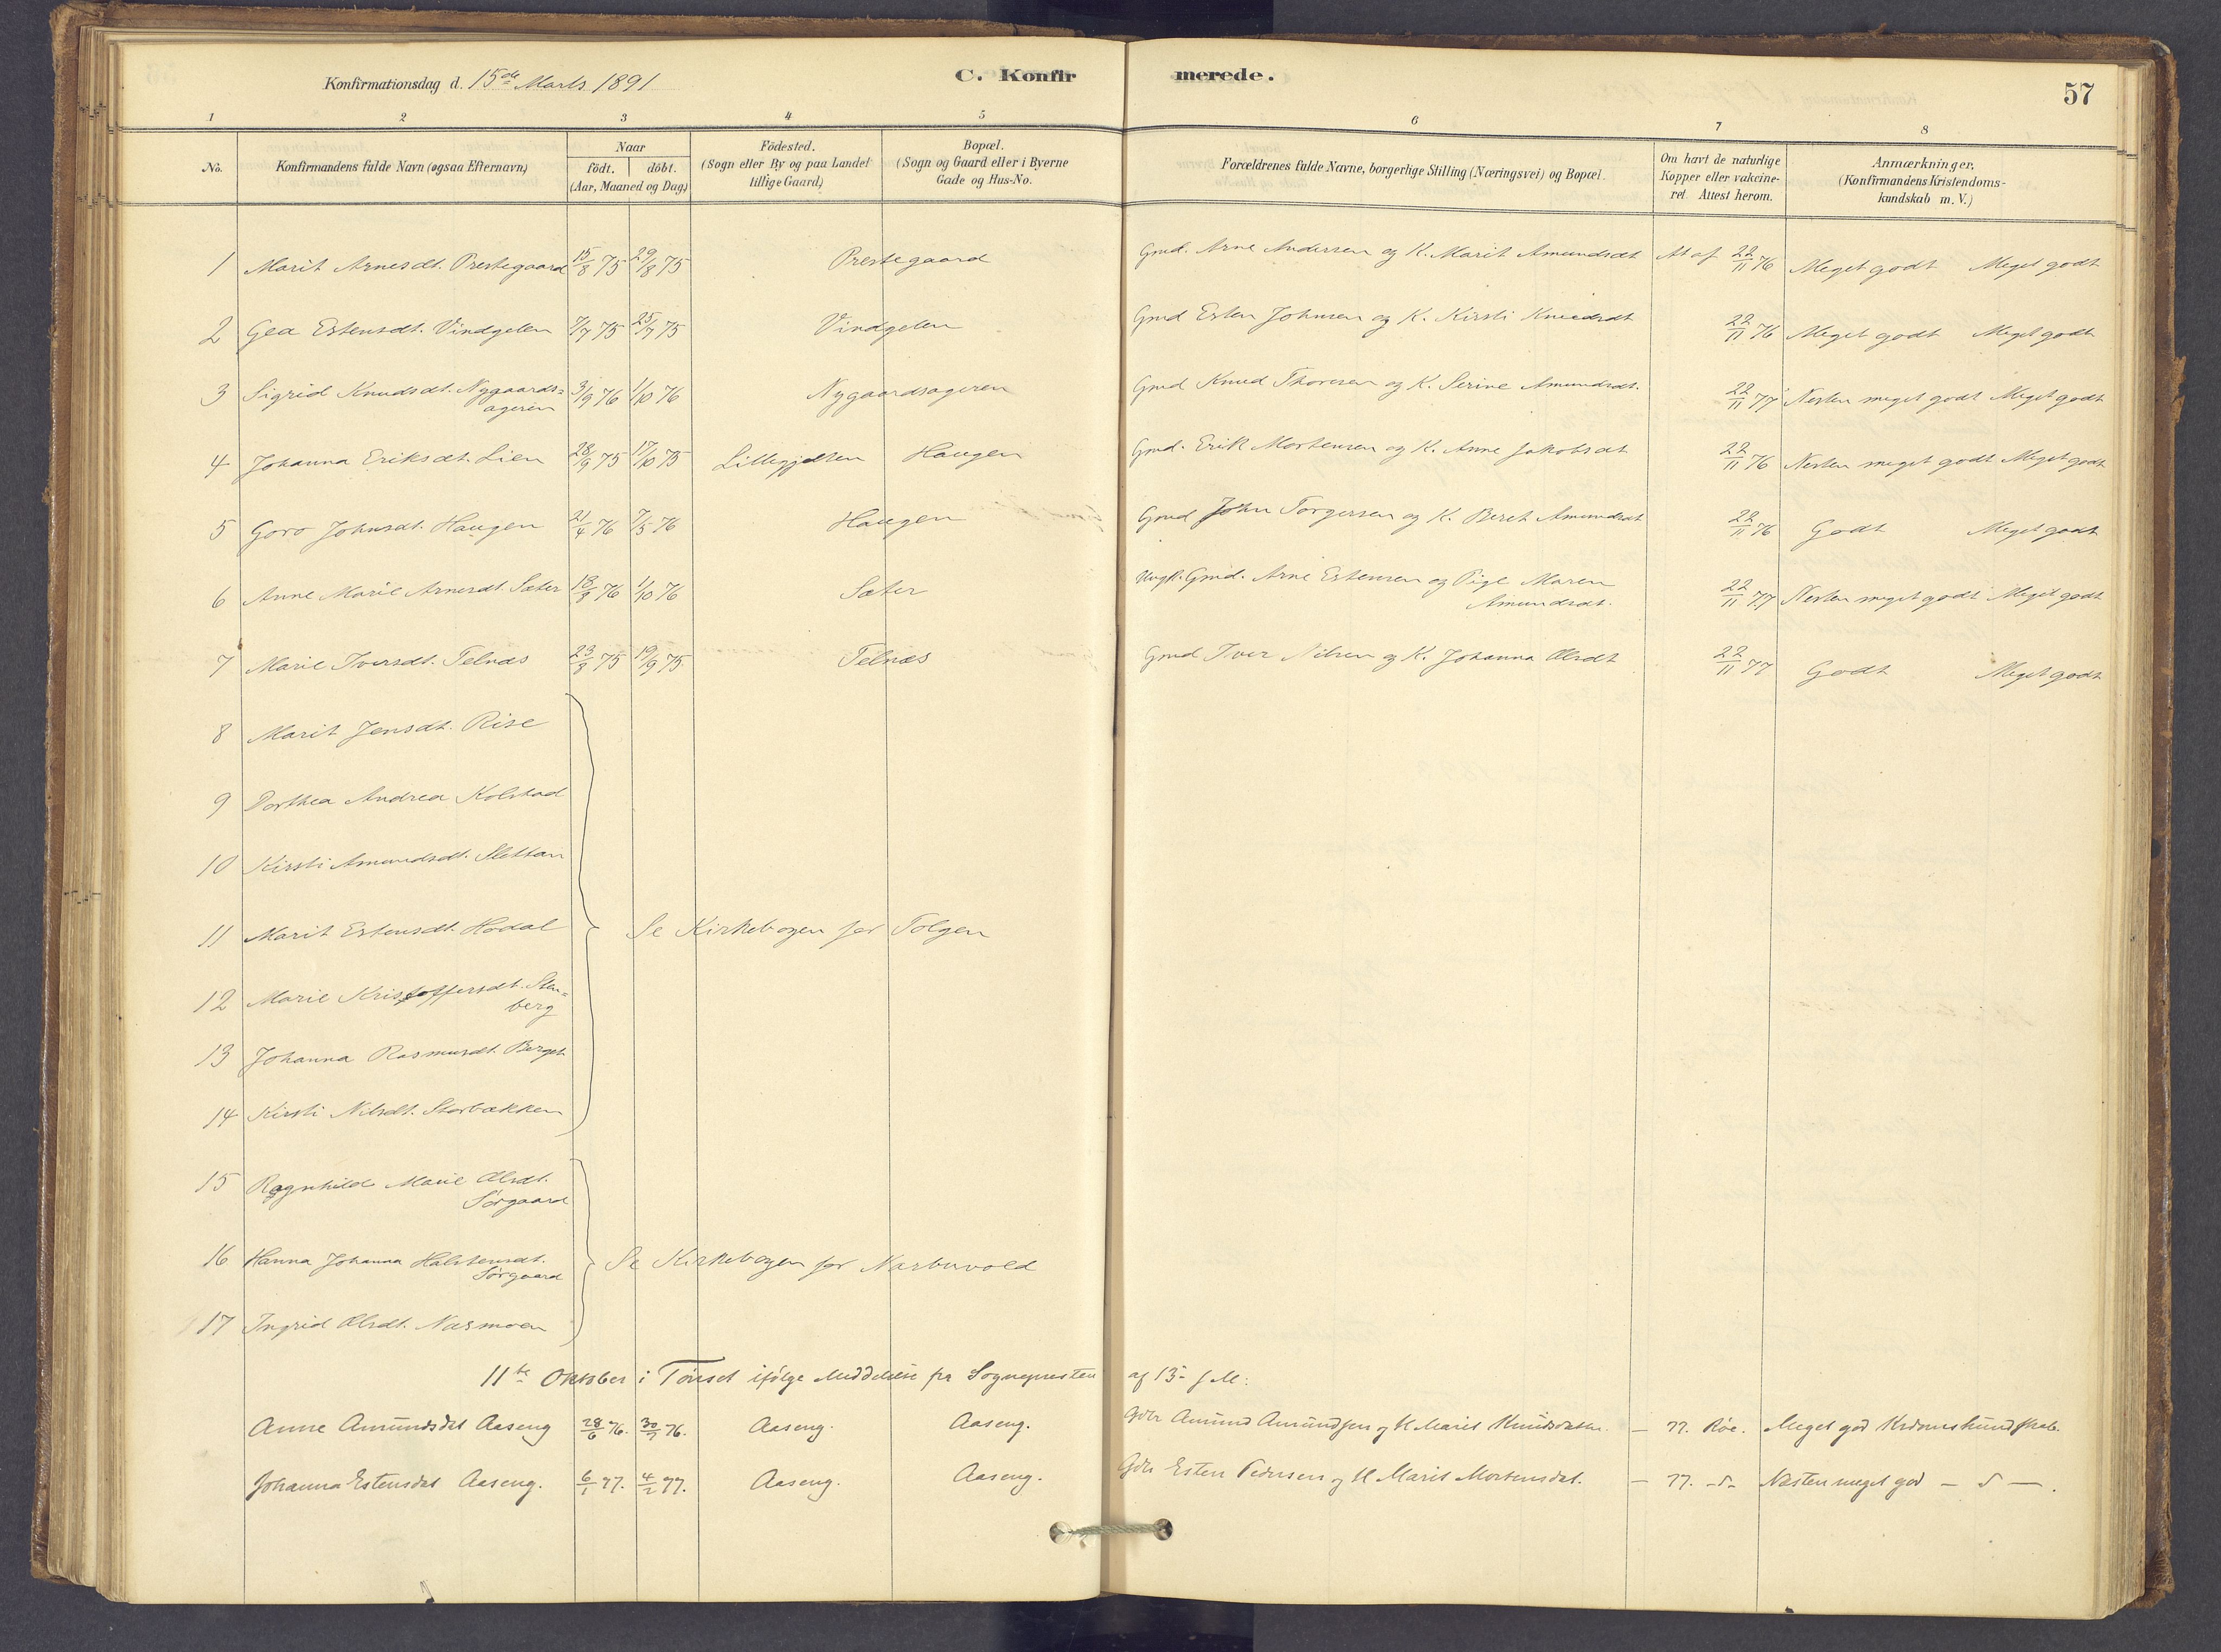 Konfirmationsdag d. 15de Marts 1891
C. Konfirmerede.
57
1 2 3 4 5 6 7 8
No.
Konfirmandens fulde Navn (ogsaa Efternavn)
Naar
födt. döbt.
(Aar, Maaned og Dag)
Födested.
(Sogn eller By og paa Landet
tillige Gaard)
Bopæl.
(Sogn og Gaard eller i Byerne
Gade og Hus-No.
Forældrenes fulde Navne, borgerlige Stilling (Næringsvei) og Bopæl.
Om havt de naturlige
Kopper eller vakcine-
ret. Attest herom.
Anmærkninger,
(Konfirmandens Kristendoms-
kundskab m. V.)
1 Marit Arnesdt. Prestegaard 15/8 75 29/8 75 Prestegaard Gmd. Arne Andersen og K. Marit Amundsdt. At af 22/11 76 Meget godt Meget godt
2 Gea Estensdt. Vindgelen 7/7 75 25/7 75 Vindgelen Gmd Esten Johnsen og K. Kirsti Knudsdt 22/11 76 Meget godt Meget godt
3 Sigrid Knudsdt. Nygaards=
ageren 3/9 76 1/10 76 Nygaardsageren Gmd Knud Thoresen og K. Serine Amundsdt. 22/11 77 Nesten meget godt Meget godt
4 Johanna Eriksdt. Lien 28/9 75 17/10 75 Lillegjelten Haugen Gmd. Erik Mortensen og K. Anne Jakobsdt 22/11 76 Nesten meget godt Meget godt
5 Goro Johnsdt. Haugen 21/4 76 7/5 76 Haugen Gmd John Torgersen og K. Beret Amundsdt 22/11 76 Godt Meget godt
6 Anne Marie Arnesdt. Sæter 18/8 76 1/10 76 Sæter Ungk. Gmd. Arne Estensen og Pige Maren
Amundsdt. 22/11 77 Nesten meget godt Meget godt
7 Marie Iversdt. Telnæs 23/8 75 19/9 75 Telnæs Gmd Iver Nilsen og K. Johanna Olsdt 22/11 77 Godt Meget godt
8 Marit Jensdt. Rise
9 Dorthea Andrea Kolstad
10 Kirsti Amundsdt. Sletten
11 Marit Estensdt. Hodal Se Kirkebogen for Tolgen
12 Marie Kristoffersdt. Sten=
berg
13 Johanna Rasmusdt. Berget
14 Kirsti Nilsdt. Storbækken
15 Ragnhild Marie Olsdt.
Sörgaard
16 Hanna Johanna Halstensdt.
Sörgaard Se Kirkebogen for Narbuvold
17 Ingrid Olsdt. Næsmoen
11te Oktober i Tönset ifölge Meddelelse fra Sognepresten af 13. s. M.
Anne Amundsdat Aaseng 28/6 76. 30/7 76. Aaseng. Aaseng. Gdbr Amund Amundsen og H. Marit Knudsdatter. — 77. Röe. Meget god Krdomskundskab.
Johanna Estensdat Aaseng. 6/1 77. 4/2 77. Aaseng. Aaseng. Gdbr Esten Pedersen og H Marit Mortensdat. — 77. -d- Næsten meget god — d —.